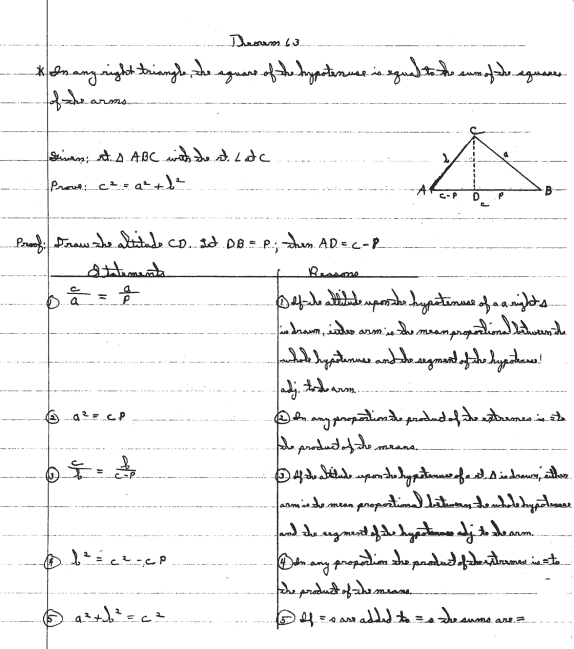 Theorem 63
* In any right triangle, the square of the hypotenuse is equal to the sum of the squares
of the arms.
Given: rt. Δ ABC with the rt. ∠ at C
Prove: c² = a² + b²
C
b a
A c-p D p B
c
Proof: Draw the altitude CD. Let DB = P; then AD = c - P
Statements Reasons
① c/a = a/p ① If the altitude upon the hypotenuse of a a right Δ
is drawn, either arm is the mean proportional between the
whole hypotenuse and the segment of the hypotenuse
adj. to the arm.
② a² = cp ② In any proportion the product of the extremes is = to
the product of the means.
③ c/b = b/c-p ③ If the altitude upon the hypotenuse of a rt. Δ is drawn, either
arm is the mean proportional between the whole hypotenuse
and the segment of the hypotenuse adj. to the arm.
④ b² = c² - cp ④ In any proportion the product of the extremes is = to
the product of the means.
⑤ a² + b² = c² ⑤ If = s are added to = s the sums are =